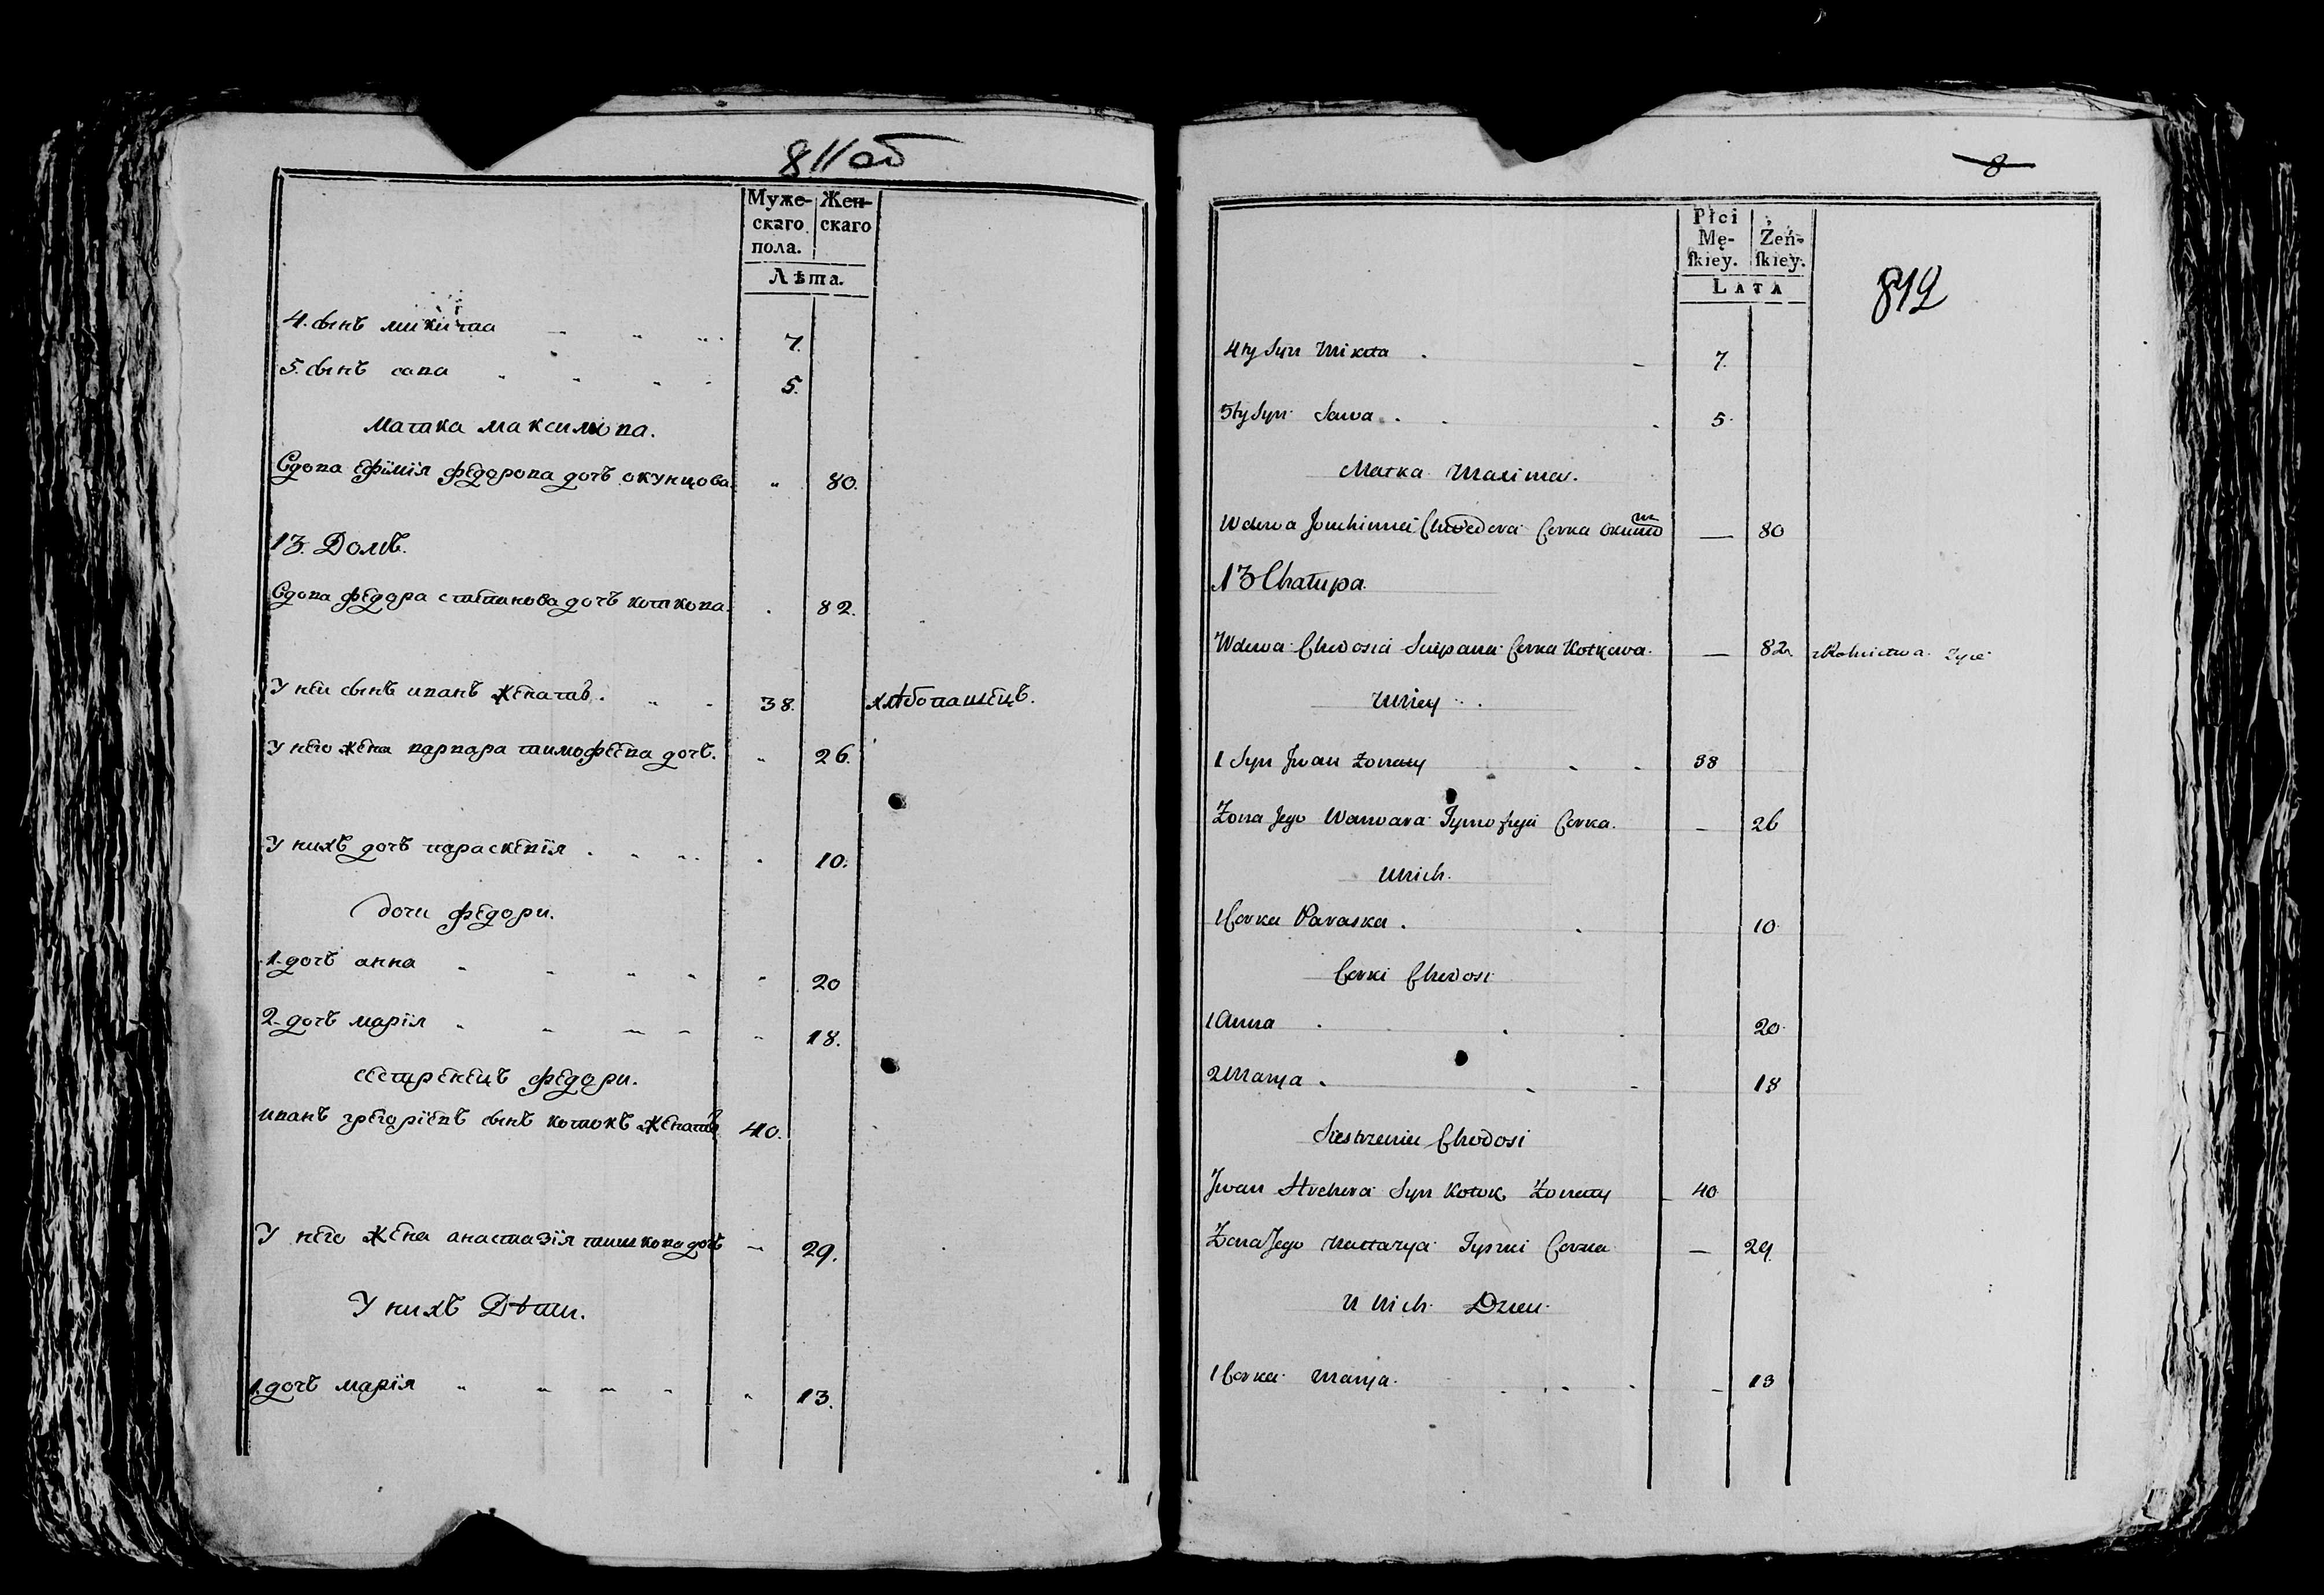 811об
Муже- Жен-
скаго скаго
пола.
Лѣта.
4. сынъ микита 7.
5. сынъ сава 5.
матка максимова.
Вдова Ефимія федорова дочъ окунцова. 80.
13. Домъ.
Вдова федора степанова дочъ коткова. 82.
У неи сынъ иванъ женатъ. 38. хлѣбопашецъ.
У него жена варвара тимофеева дочъ. 26.
У нихъ дочъ параскевія 10.
дочи федори.
1. дочъ анна 20
2. дочъ марія 18.
сестренецъ федори.
иванъ григоріевъ сынъ котокъ женатъ 40.
У него жена анастазія тишкова дочъ 29.
У нихъ Дѣти.
1. дочъ марія 13.
8
812
Płci
Mę- Żeń-
skiey. skiey.
LATA
4ty Syn Mikita 7.
5ty Syn Sawa 5
Matka Maxima.
Wdowa Chwedora Corka 80
13 Chałupa.
Wdowa Chwedosia Sciepana Corka Kotkowa. 82 z Rolnictwa Żyie
U Niey
1 Syn Iwan Żonaty 38
Żona Jego Warwara Tymofieja Corka. 26
U Nich.
1 Corka Paraska. 10
Corki Chwedosi
1 Anna 20
2 Marya 18
Siestrzeniec Chwedosi
Iwan Syn Kotok Żonaty 40
Żona Jego Nastazya Corka 29.
U Nich Dzieci
1 Corka Marya. 13